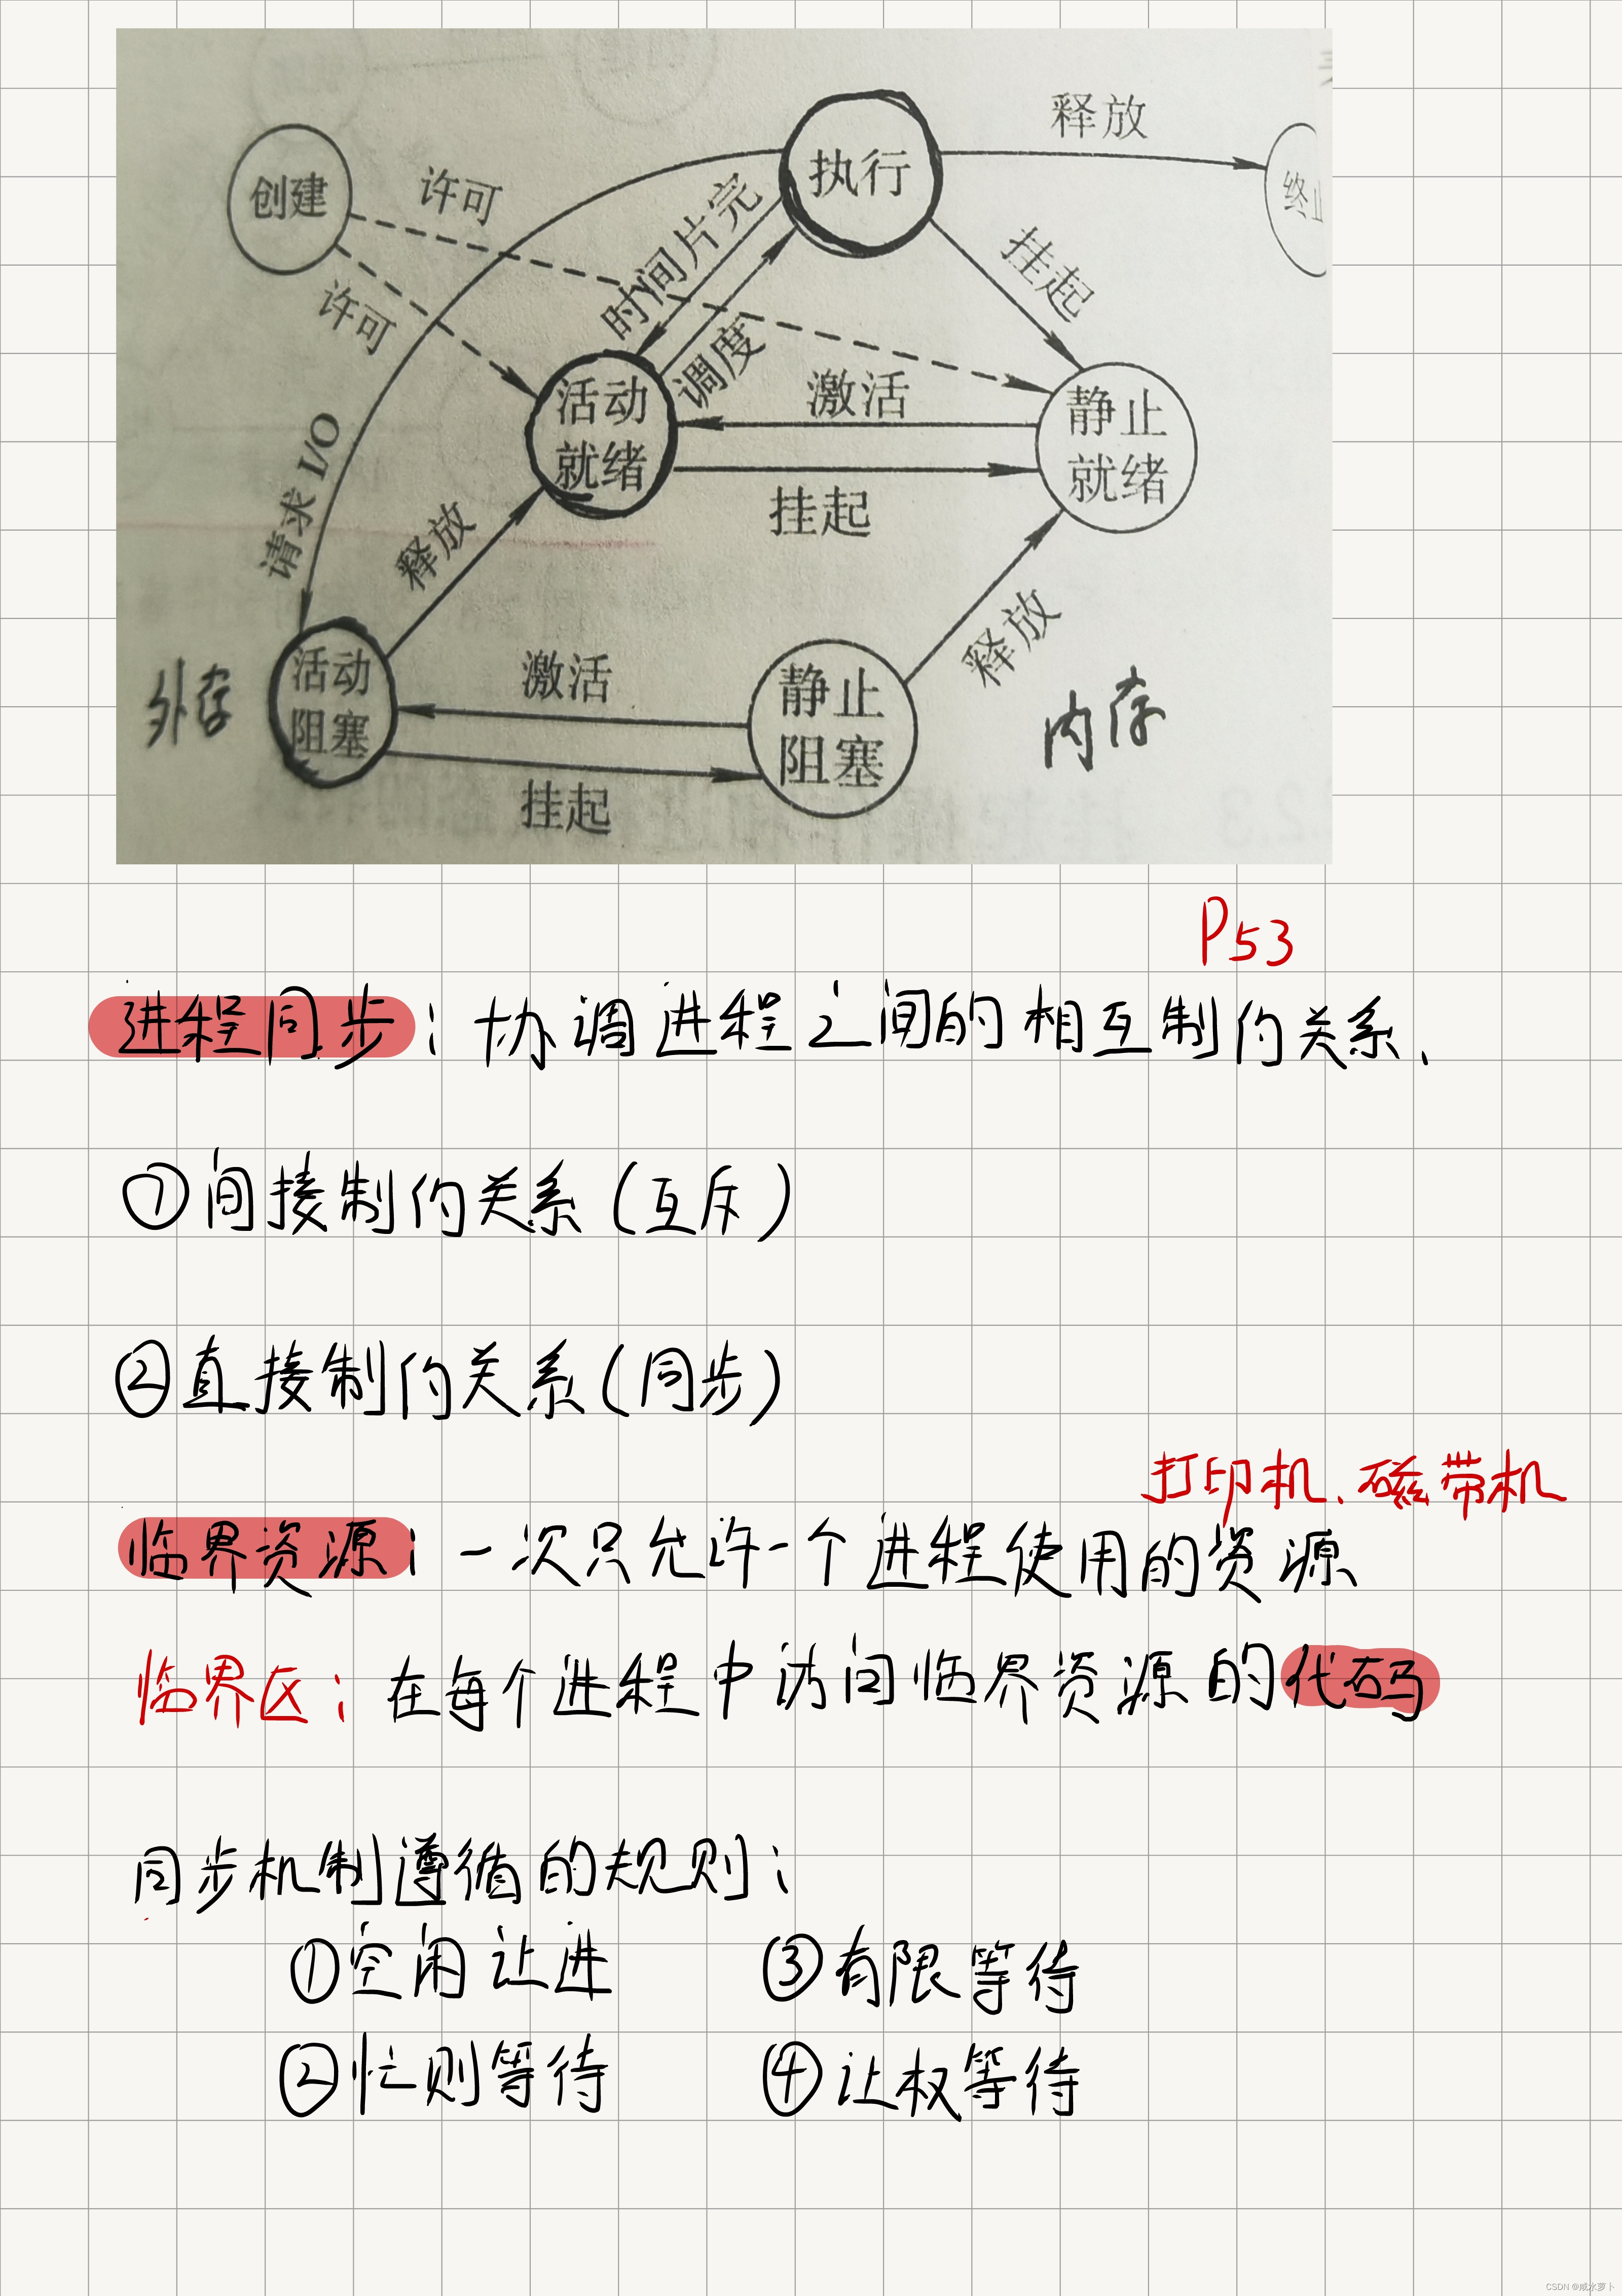 释放
执行
创建
许可
终止
时间片完
挂起
许可
调度
激活
活动
就绪
静止
就绪
请求 I/O
挂起
释放
释放
活动
阻塞
激活
静止
阻塞
外存
内存
挂起
P53
进程同步：协调进程之间的相互制约关系、
①间接制约关系（互斥）
②直接制约关系（同步）
打印机、磁带机
临界资源：一次只允许一个进程使用的资源
临界区：在每个进程中访问临界资源的代码
同步机制遵循的规则：
①空闲让进 ③有限等待
②忙则等待 ④让权等待
CSDN @咸水萝卜